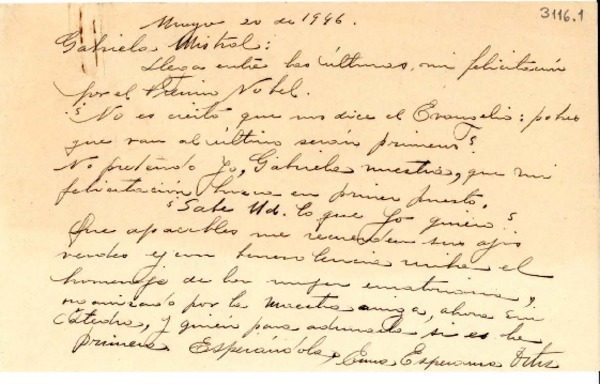 3116.1
Mayo 20 de 1946.
Gabriela Mistral:
Llega entre las últimas, mi felicitación
por el Premio Nobel.
¿No es cierto que nos dice el Evangelio: 
que van al último serán primeros?
No pretendo yo, Gabriela nuestra, que mi
felicitación en primer puesto.
¿Sabe Ud. lo que yo quiero?
Que apacibles me recuerden sus ojos
verdes y con benevolencia reciba el
homenaje de 
por la maestra amiga, ahora sin
cátedra, y quién para admirarla si es la
primera Esperándola, Ema Esperanza Ortiz